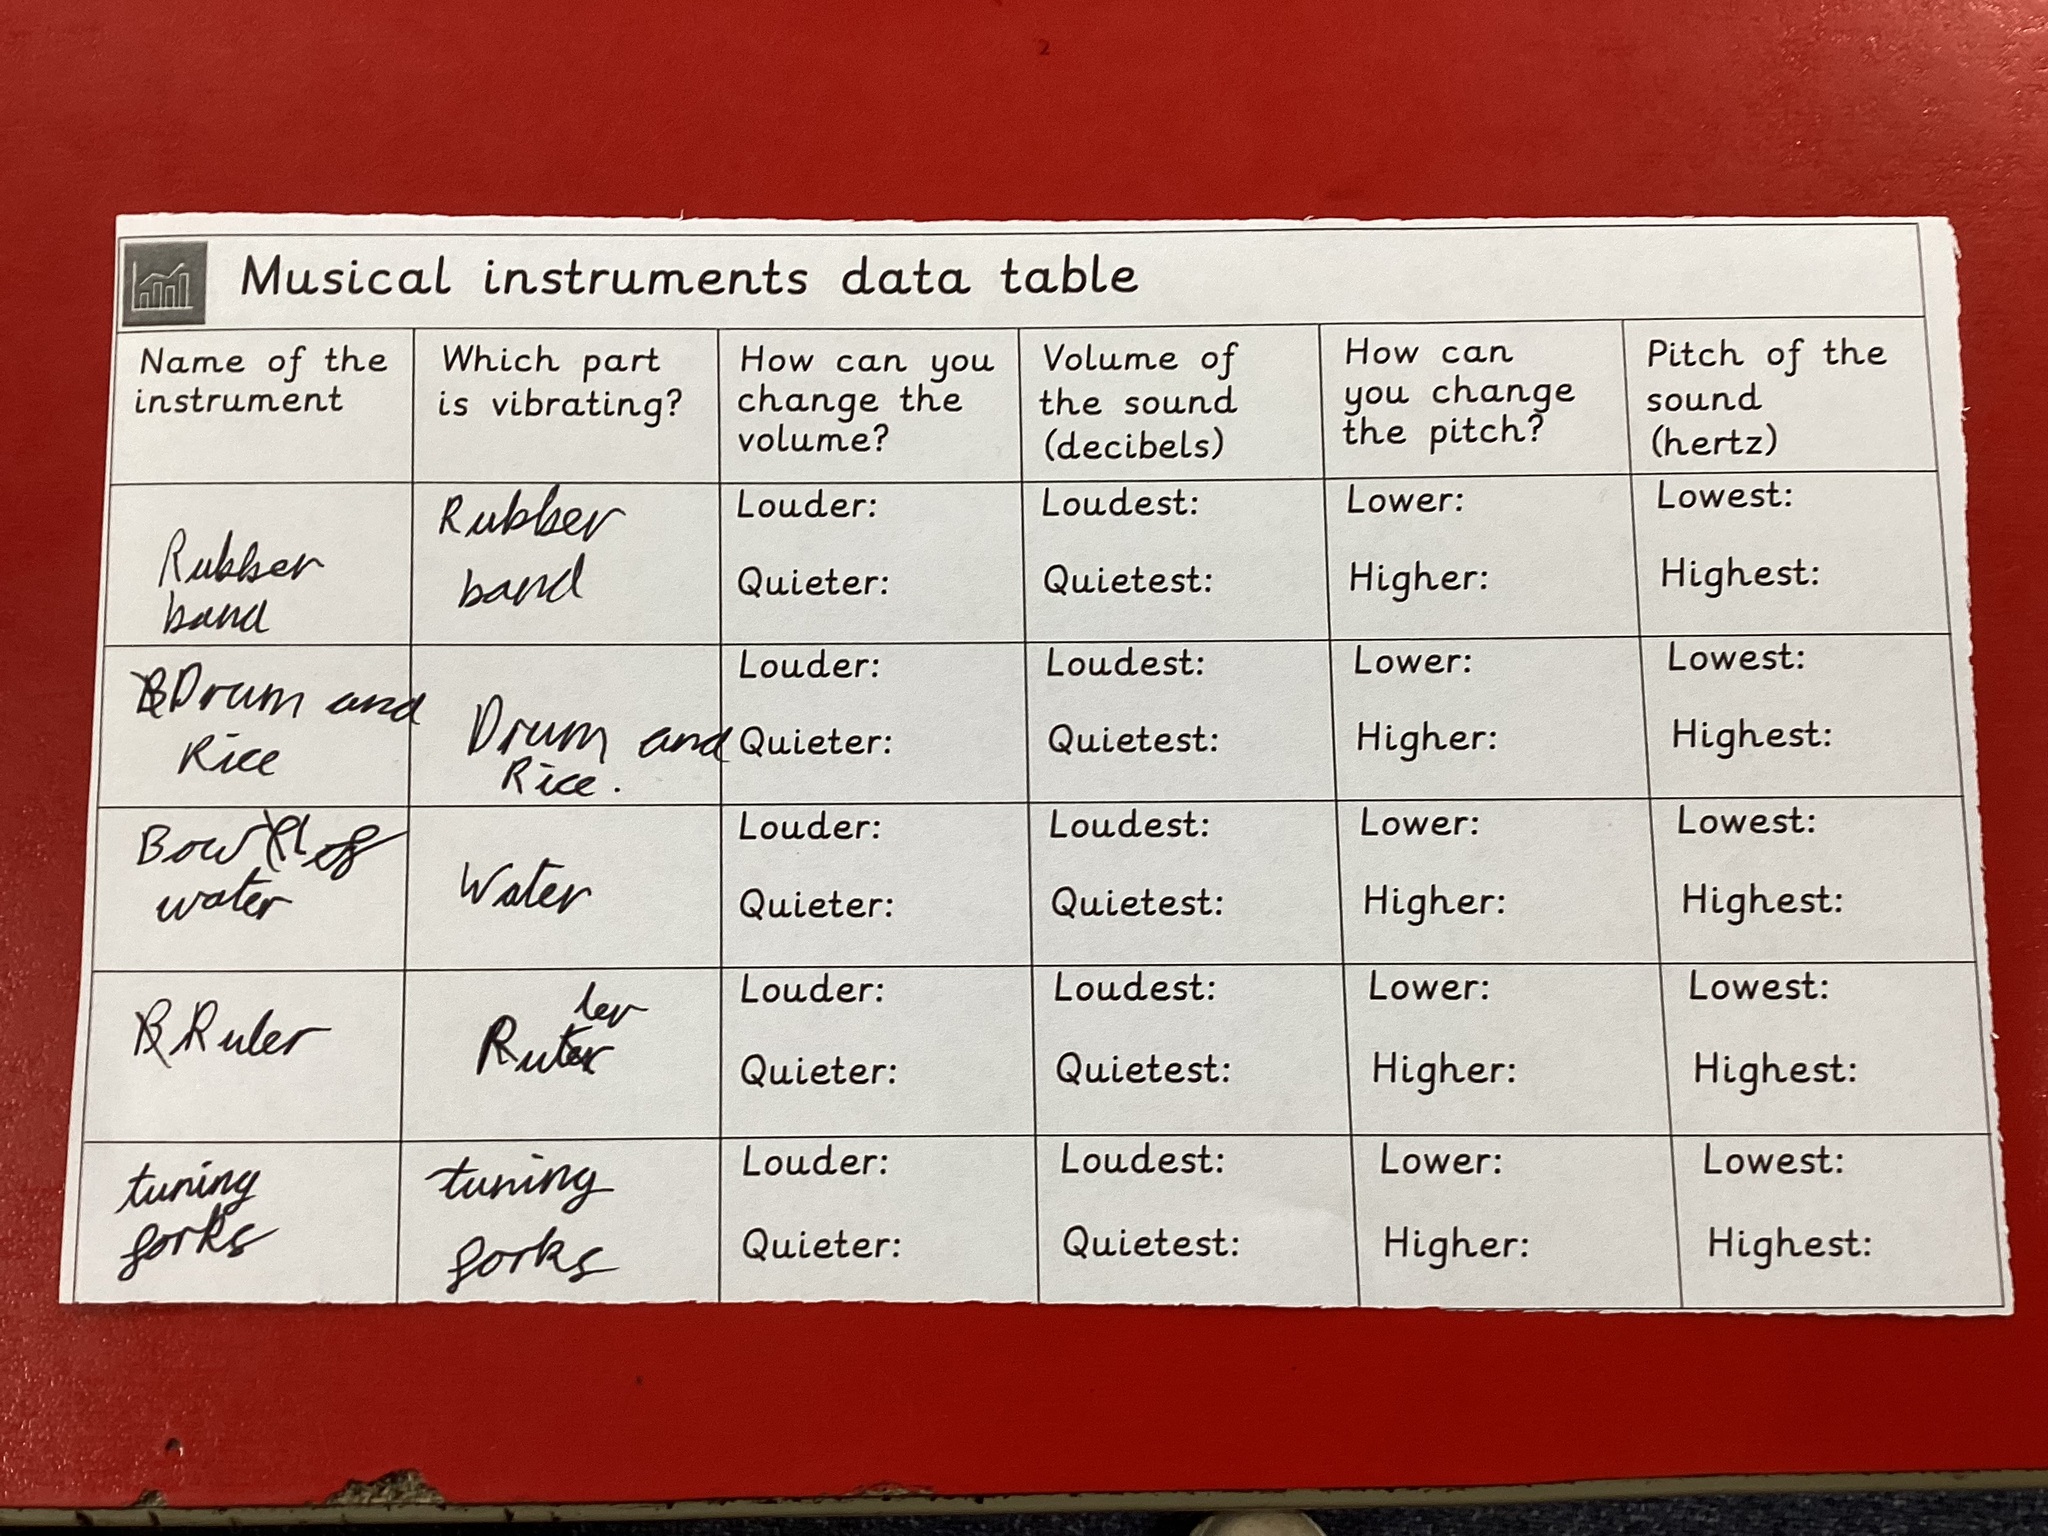 Musical instruments data table
Name of the instrument
Which part is vibrating?
How can you change the volume?
Volume of the sound (decibels)
How can you change the pitch?
Pitch of the sound (hertz)
Rubber band
Rubber band
Louder:
Quieter:
Loudest:
Quietest:
Lower:
Higher:
Lowest:
Highest:
Drum and Rice
Drum and Rice.
Louder:
Quieter:
Loudest:
Quietest:
Lower:
Higher:
Lowest:
Highest:
Bowl of water
Water
Louder:
Quieter:
Loudest:
Quietest:
Lower:
Higher:
Lowest:
Highest:
Ruler
Ruler
Louder:
Quieter:
Loudest:
Quietest:
Lower:
Higher:
Lowest:
Highest:
tuning forks
tuning forks
Louder:
Quieter:
Loudest:
Quietest:
Lower:
Higher:
Lowest:
Highest: